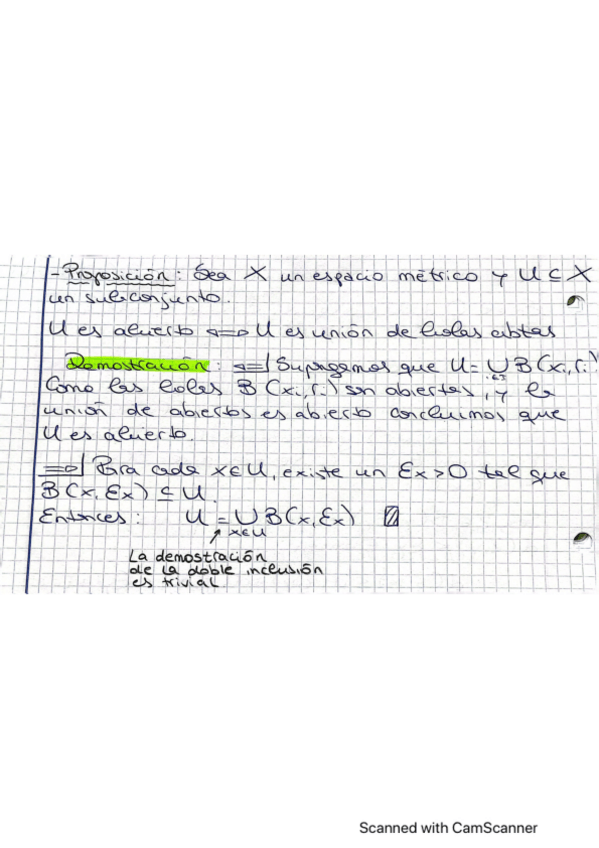 - Proposición: Sea X un espacio métrico y U ⊆ X
un subconjunto.
U es abierto ⟺ U es unión de bolas abtas
Demostración: ⟸| Supongamos que U = ∪ B(xi, ri)
i∈I
Como las bolas B(xi, ri) son abiertas, y la
unión de abiertos es abierto concluimos que
U es abierto.
⟹| Para cada x∈U, existe un Ɛx>0 tal que
B(x, Ɛx) ⊆ U.
Entonces: U = ∪ B(x, Ɛx)
x∈U
La demostración
de la doble inclusión
es trivial.
Scanned with CamScanner